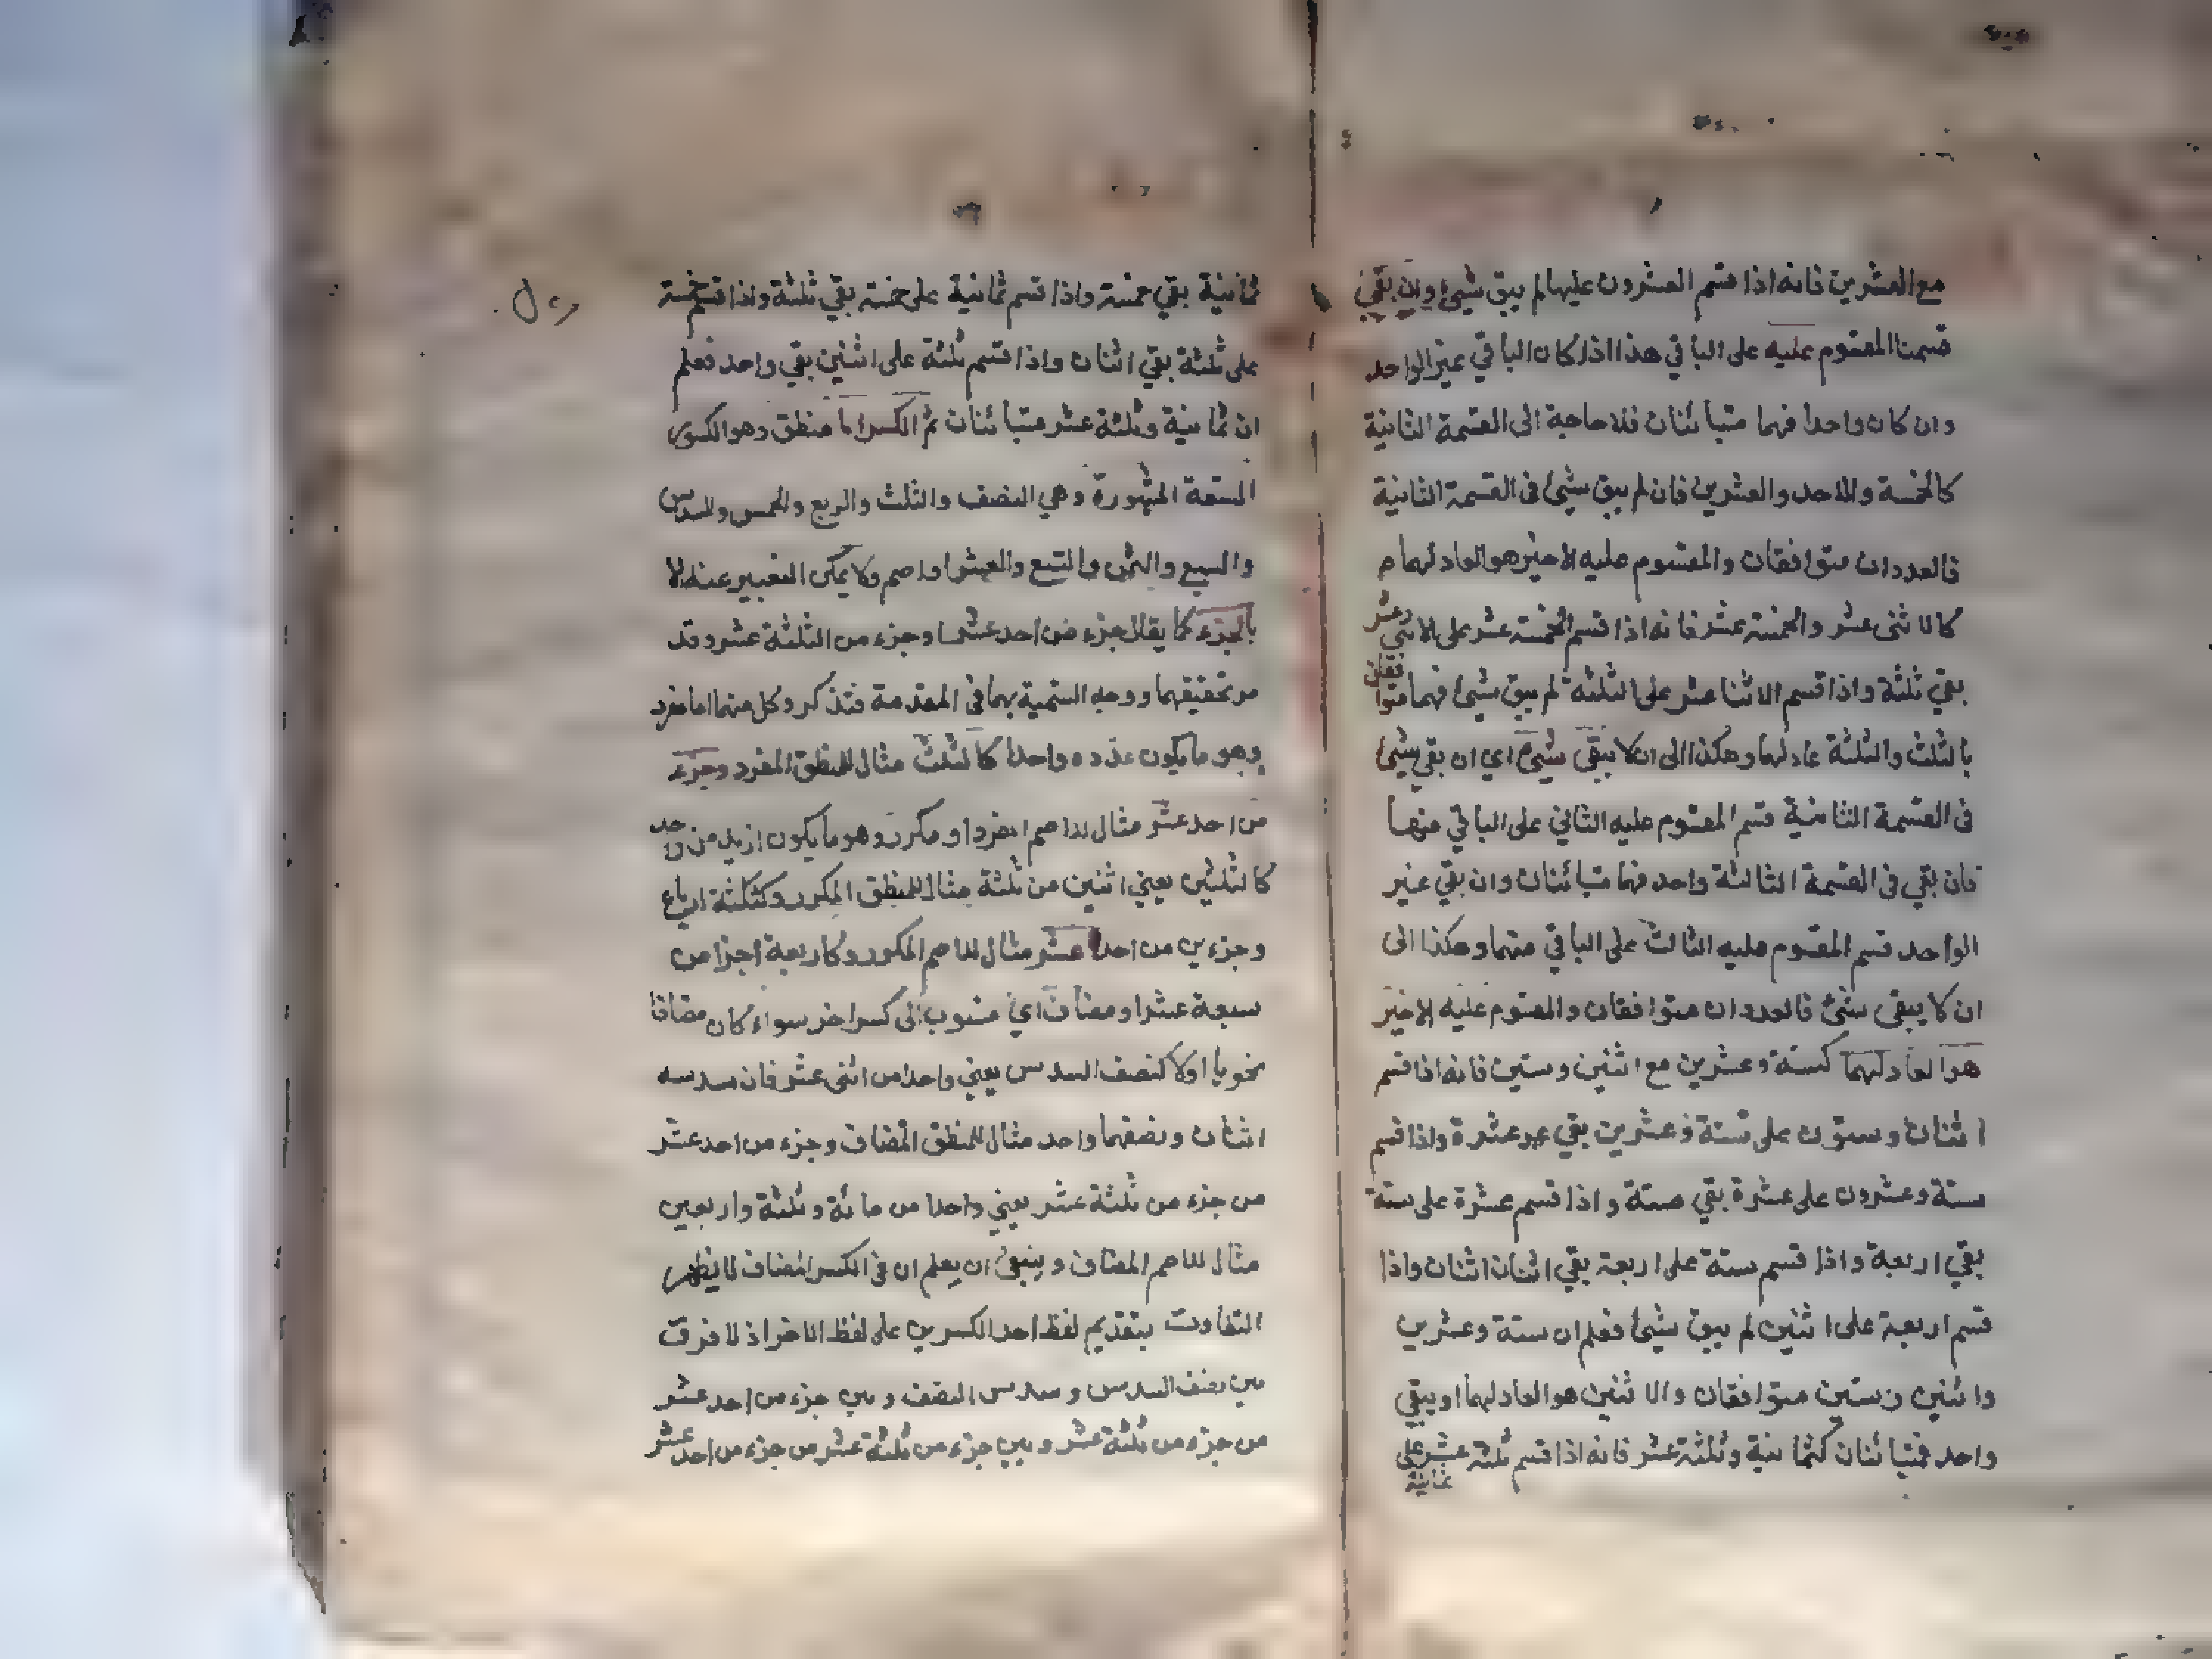 مع العشرين فانه اذا قسم العشرون عليها لم يبق شيئ وان بقي
قسمنا المقسوم عليه على الباقي هذا اذا كان الباقي غير الواحد
وان كان واحدا فهما متبائنان فلا حاجة الى القسمة الثانية
كالخمسة والاحد والعشرين فان لم يبق شيئ في القسمة الثانية
فالعددان متوافقان والمقسوم عليه الاخير هو العاد لهما
كالاثنى عشر والخمسة عشر فانه اذا قسم الخمسة عشر على الاثني عشر
بقي ثلثة واذا قسم الاثنا عشر على الثلثة لم يبق شيئ فهما متوافقان
بالثلث والثلثة عاد لهما وهكذا الى ان لا يبقى شيئ اي ان بقي شيئ
في القسمة الثانية قسم المقسوم عليه الثاني على الباقي منها
فان بقي في القسمة الثالثة واحد فهما متبائنان وان بقي غير
الواحد قسم المقسوم عليه الثالث على الباقي منهما وهكذا الى
ان لا يبقى شيئ فالعددان متوافقان والمقسوم عليه الاخير
هو العاد لهما كستة وعشرين مع اثنين وستين فانه اذا قسم
اثنان وستون على ستة وعشرين بقي عشرة واذا قسم
ستة وعشرون على عشرة بقي ستة واذا قسم عشرة على ستة
بقي اربعة واذا قسم ستة على اربعة بقي اثنان اثنان واذا
قسم اربعة على اثنين لم يبق شيئ فعلم ان ستة وعشرين
واثنين وستين متوافقان والاثنين هو العاد لهما او يبقى
واحد فمتبائنان كثمانية وثلثة عشر فانه اذا قسم ثلثة عشر على
ثمانية
ثمانية بقي خمسة واذا قسم ثمانية على خمسة بقي ثلثة واذا قسم خمسة
على ثلثة بقي اثنان واذا قسم ثلثة على اثنين بقي واحد فعلم
ان ثمانية وثلثة عشر متبائنان ثم الكسر اما منطق وهو الكسور
التسعة المشهورة وهي النصف والثلث والربع والخمس والسدس
والسبع والثمن والتسع والعشر او اصم ولا يمكن التعبير عنه الا
بالجزء كما يقال جزء من احد عشر وجزء من الثلثة عشر وقد
مر تحقيقهما ووجه التسمية بهما في المقدمة فتذكر وكل منهما اما مفرد
وهو ما يكون عدده واحدا كالثلث مثال للمنطق المفرد وجزء
من احد عشر مثال للاصم المفرد او مكرر وهو ما يكون ازيد من واحد
كالثلثين يعني اثنين من ثلثة مثال للمنطق المكرر وكثلثة ارباع
وجزءين من احد عشر مثال للاصم المكرر وكاربعة اجزا من
سبعة عشر او مضاف اي منسوب الى كسر اخر سواء كان مضافا
نحويا او لا كنصف السدس يعني واحدا من اثنى عشر فان سدسه
اثنان ونصفهما واحد مثال للمنطق المضاف وجزء من احد عشر
من جزء من ثلثة عشر يعني واحدا من مائة وثلثة واربعين
مثال للاصم المضاف وينبغي ان يعلم ان في الكسر المضاف لا يظهر
التفاوت بتقديم لفظ احد الكسرين على لفظ الاخر اذ لا فرق
بين نصف السدس وسدس النصف وبين جزء من احد عشر
من جزء من ثلثة عشر وبين جزء من ثلثة عشر من جزء من احد عشر